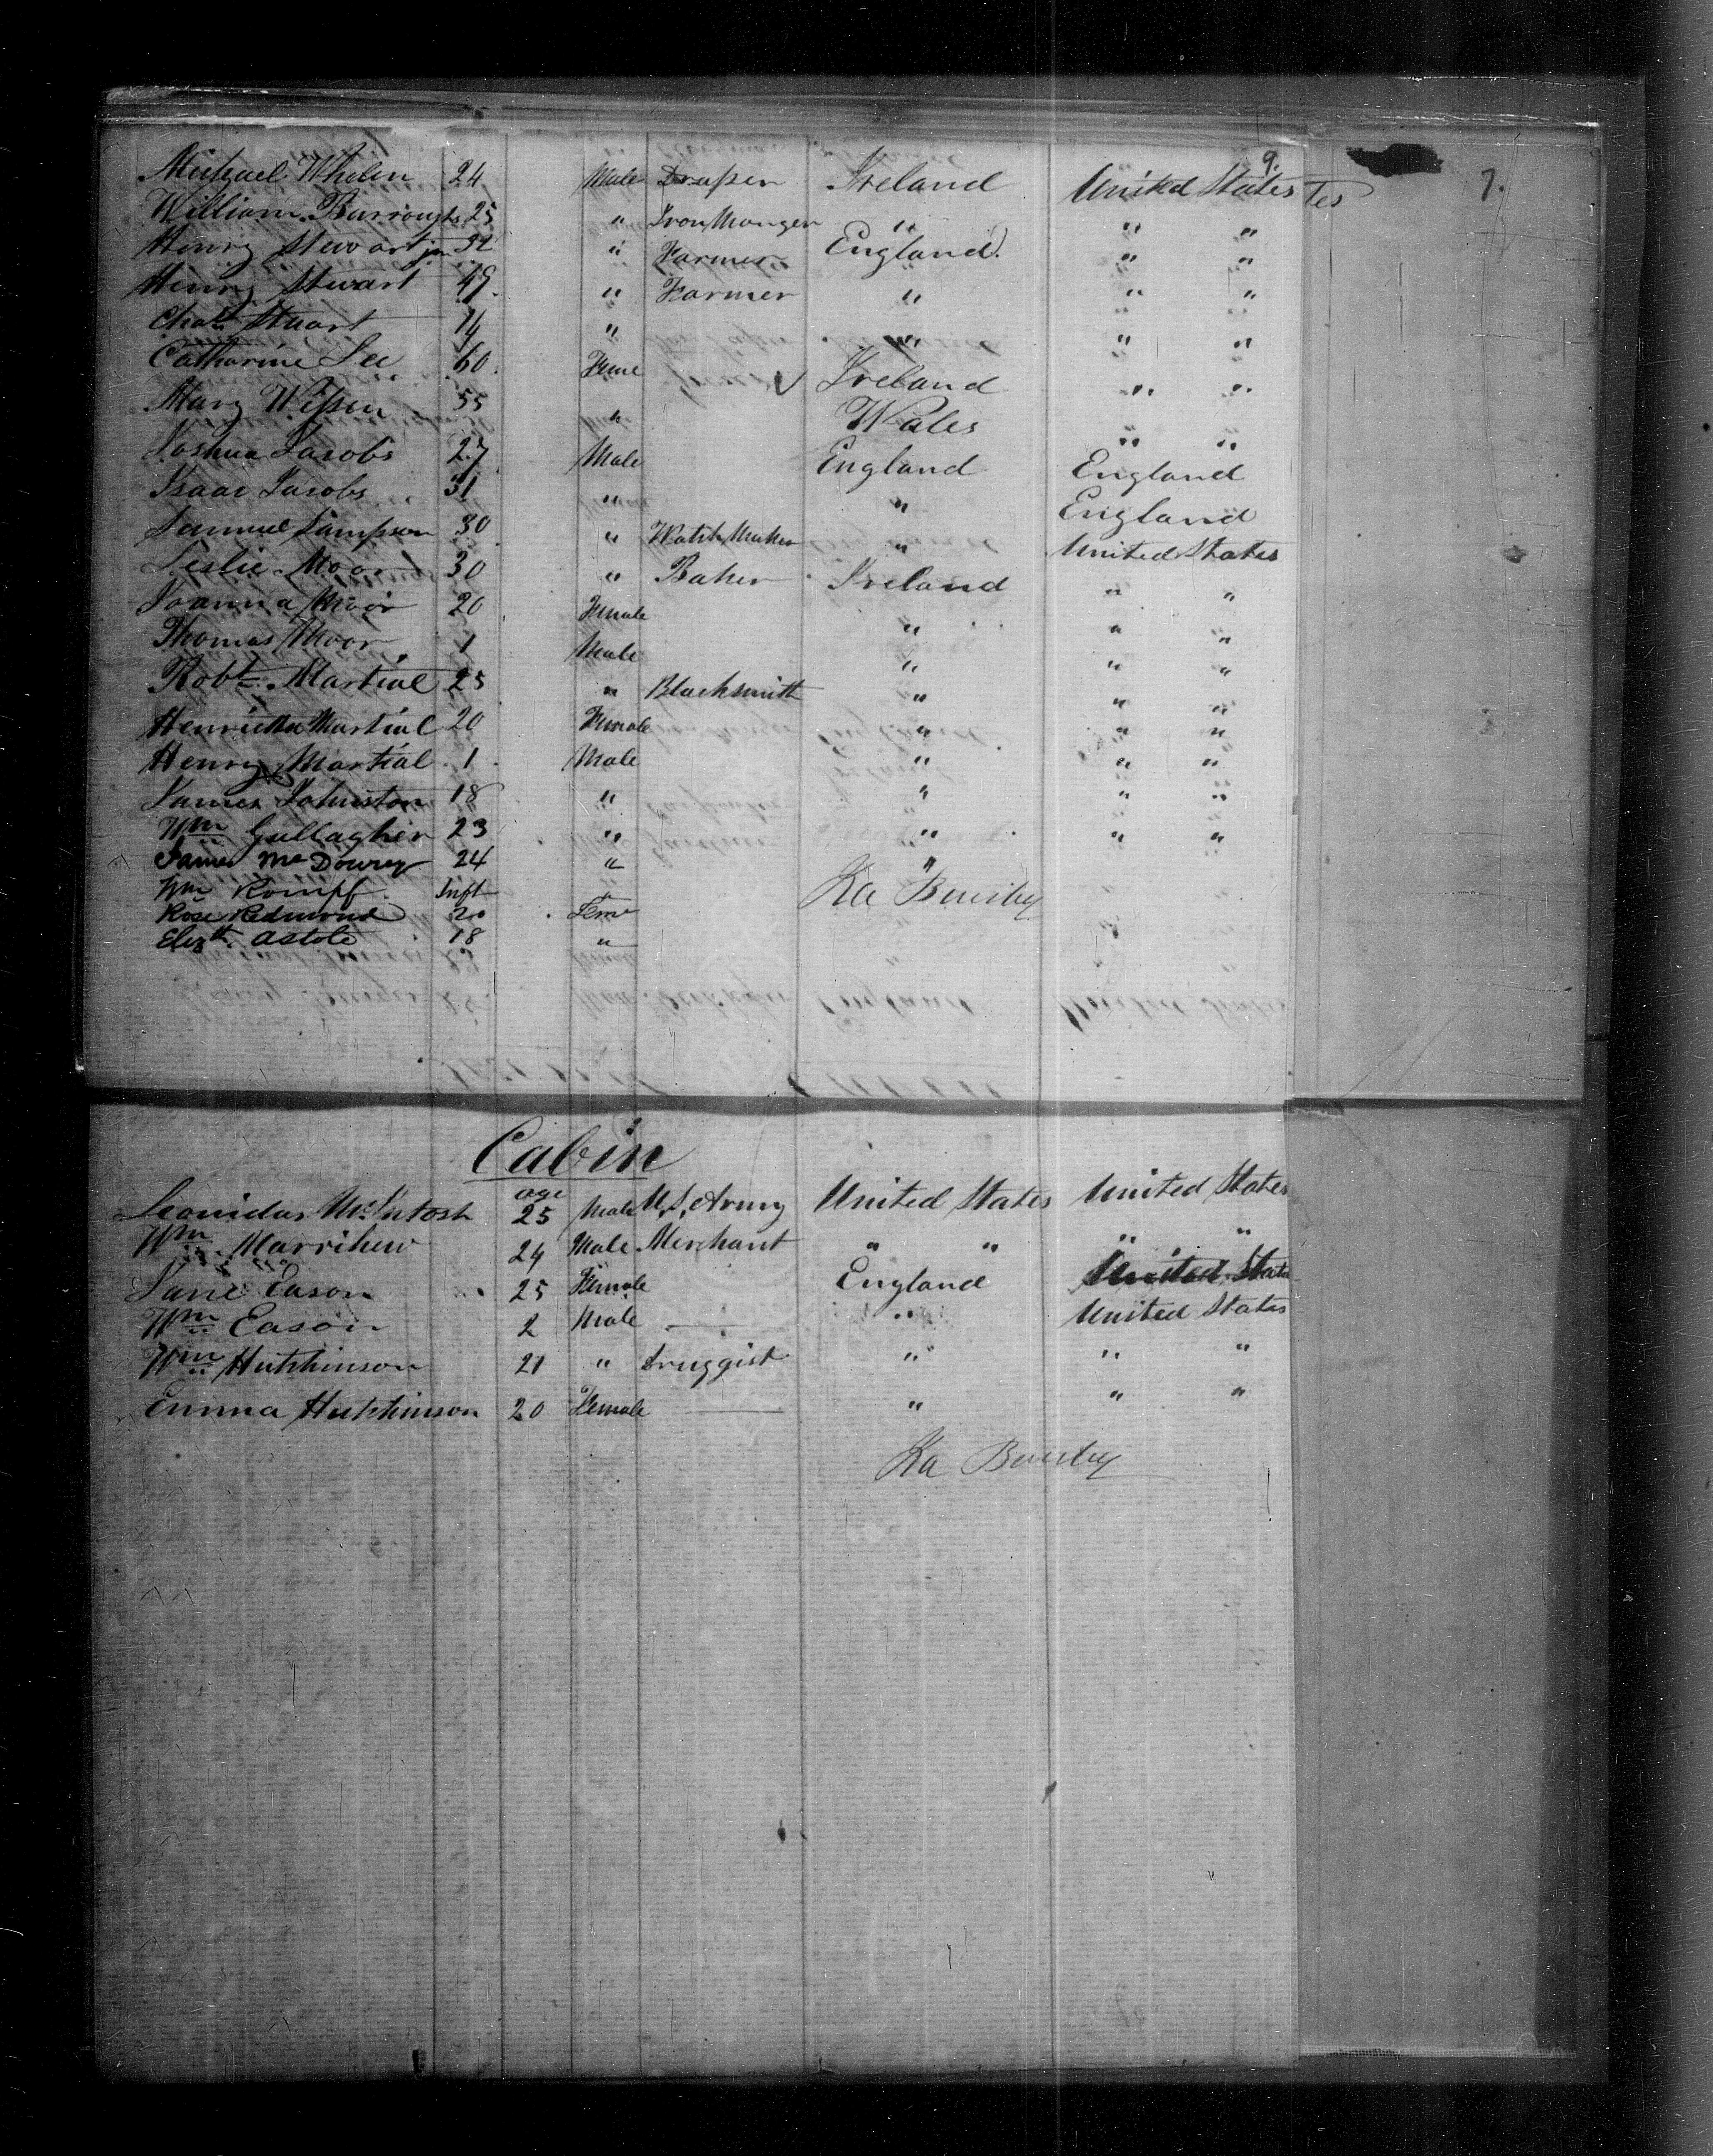 9.
7.
Michael Whelen 24 Male Draper Ireland United States tes
William Burroughs 25 " Iron Monger " " "
Henry Stewart jnr 32 " Farmer England " "
Henry Stewart 49 " Farmer " " "
Chas Stuart 14 " " " "
Catharine Lee 60 Feme Ireland " "
Mary 55 " Wales " "
Joshua Jacobs 27 Male England England
Isaac Jacobs 31 " " England
Samuel Sampson 30 " Watch Maker " United States
Leslie Moor 30 " Baker Ireland " "
Joanna Moor 20 Female " " "
Thomas Moor 1 Male " " "
Robt Martial 25 " Blacksmith " " "
Henrietta Martial 20 Female " " "
Henry Martial 1 Male " " "
James Johnston 18 " " " "
Wm Gullagher 23 " " " "
James McDowry 24 " "
Wm Rompf Inft
Rose Redmond 20 Fem
Elizth Astole 18 "
Cabin
age
Leonidas McIntosh 25 Male U.S. Army United States United States
Wm Marrihew 24 Male Merchant " " " "
Jane Eason 25 Female England United States
Wm Eason 2 Male " United States
Wm Hutchinson 21 " Druggist " " "
Emma Hutchinson 20 Female " " "